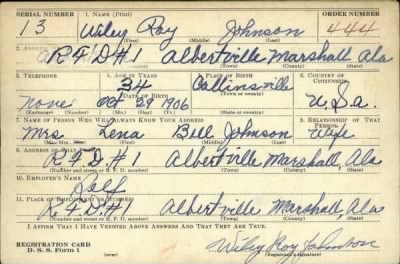 SERIAL NUMBER 1. NAME (Print) ORDER NUMBER
13 Wiley Roy Johnson 444
(First) (Middle) (Last)
2. ADDRESS (Print)
R.F.D.#1 Albertville Marshall Ala
(Number and street or R. F. D. number) (Town) (County) (State)
3. TELEPHONE 4. AGE IN YEARS 5. PLACE OF BIRTH 6. COUNTRY OF CITIZENSHIP
34 Collinsville
DATE OF BIRTH (Town or county)
None Oct 29 1906 U.S.a.
(Exchange) (No.) (Mo.) (Day) (Yr.) (State or country)
7. NAME OF PERSON WHO WILL ALWAYS KNOW YOUR ADDRESS 8. RELATIONSHIP OF THAT PERSON
Mrs. Lena Bell Johnson Wife
(Mr., Mrs., Miss) (First) (Middle) (Last)
9. ADDRESS OF THAT PERSON
R.F.D.#1 Albertville Marshall, Ala
(Number and street or R. F. D. number) (Town) (County) (State)
10. EMPLOYER'S NAME
Self
11. PLACE OF EMPLOYMENT OR BUSINESS
R.F.D.#1 Albertville Marshall Ala
(Number and street or R. F. D. number) (Town) (County) (State)
I AFFIRM THAT I HAVE VERIFIED ABOVE ANSWERS AND THAT THEY ARE TRUE.
REGISTRATION CARD Wiley Roy Johnson
D. S. S. Form 1 (Registrant's signature)